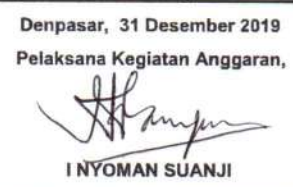 Denpasar, 31 Desember 2019
Pelaksana Kegiatan Anggaran,
I NYOMAN SUANJI